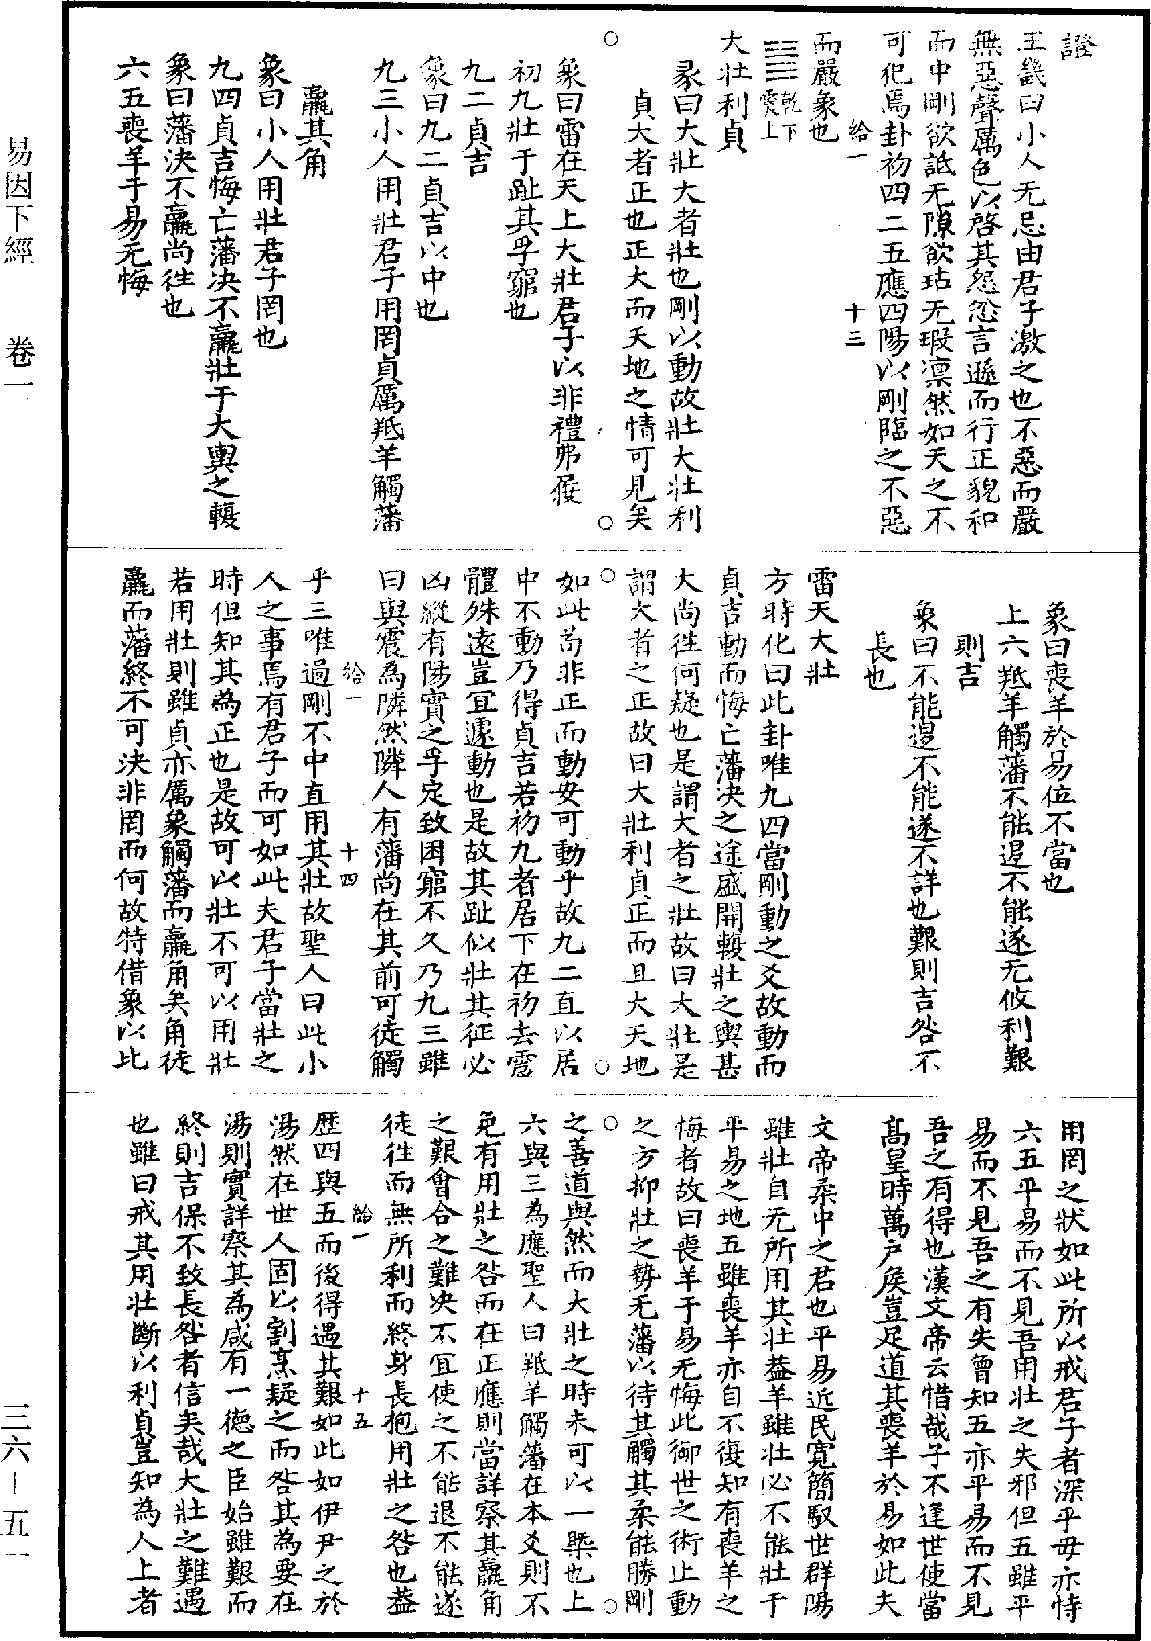 證
王畿曰小人无忌由君子激之也不惡而嚴
無惡聲厲色以啓其怨忿言遜而行正貌和
而中剛欲詆无隙欲玷无瑕凜然如天之不
可犯焉卦初四二五應四陽以剛臨之不惡
給一 十三
而嚴象也
䷡乾下震上
大壯利貞
彖曰大壯大者壯也剛以動故壯大壯利
貞大者正也正大而天地之情可見矣
○ ○
象曰雷在天上大壯君子以非禮弗履
初九壯于趾其孚窮也
九二貞吉
象曰九二貞吉以中也
九三小人用壯君子用罔貞厲羝羊觸藩
羸其角
象曰小人用壯君子罔也
九四貞吉悔亡藩決不羸壯于大輿之輹
象曰藩決不羸尚往也
六五喪羊于易无悔
象曰喪羊於易位不當也
上六羝羊觸藩不能退不能遂无攸利艱
則吉
象曰不能退不能遂不詳也艱則吉咎不
長也
雷天大壯
方時化曰此卦唯九四當剛動之爻故動而
貞吉動而悔亡藩決之途盛開輹壯之輿甚
大尚往何疑也是謂大者之壯故曰大壯是
謂大者之正故曰大壯利貞正而且大天地
○ ○
如此苟非正而動安可動乎故九二直以居
中不動乃得貞吉若初九者居下在初去震
體殊遠豈宜遽動也是故其趾似壯其征必
凶縱有陽實之孚定致困窮不久乃九三雖
曰與震為隣然隣人有藩尚在其前可徒觸
給一 十四
乎三唯過剛不中直用其壯故聖人曰此小
人之事焉有君子而可如此夫君子當壯之
時但知其為正也是故可以壯不可以用壯
若用壯則雖貞亦厲象觸藩而羸角矣角徒
羸而藩終不可決非罔而何故特借象以比
用罔之狀如此所以戒君子者深乎毋亦恃
六五平易而不見吾用壯之失邪但五雖平
易而不見吾之有失曾知五亦平易而不見
吾之有得也漢文帝云惜哉子不逢世使當
高皇時萬户侯豈足道其喪羊於易如此夫
文帝柔中之君也平易近民寬簡馭世群陽
雖壯自无所用其壯葢羊雖壯必不能壯于
平易之地五雖喪羊亦自不復知有喪羊之
悔者故曰喪羊于易无悔此御世之術止動
之方抑壯之勢无藩以待其觸其柔能勝剛
○ ○
之善道與然而大壯之時未可以一槩也上
六與三為應聖人曰羝羊觸藩在本爻則不
免有用壯之咎而在正應則當詳察其羸角
之艱會合之難决不宜使之不能退不能遂
徒往而無所利而終身長抱用壯之咎也葢
給一 十五
歷四與五而後得遇其艱如此如伊尹之於
湯然在世人固以割烹疑之而咎其為要在
湯則實詳察其為咸有一德之臣始雖艱而
終則吉保不致長咎者信矣哉大壯之難遇
也雖曰戒其用壯斷以利貞豈知為人上者
易因下經 卷一 三六－五一